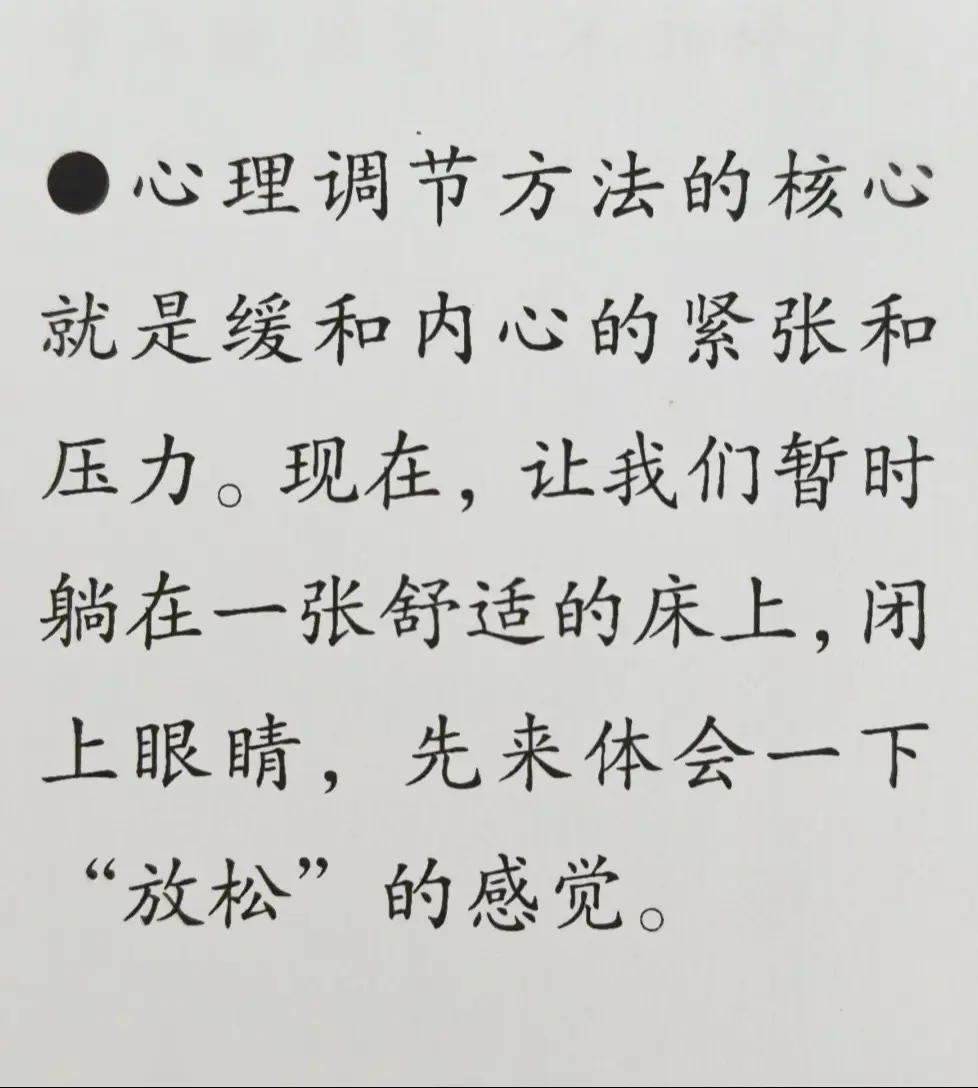 ●心理调节方法的核心
就是缓和内心的紧张和
压力。现在，让我们暂时
躺在一张舒适的床上，闭
上眼睛，先来体会一下
“放松”的感觉。